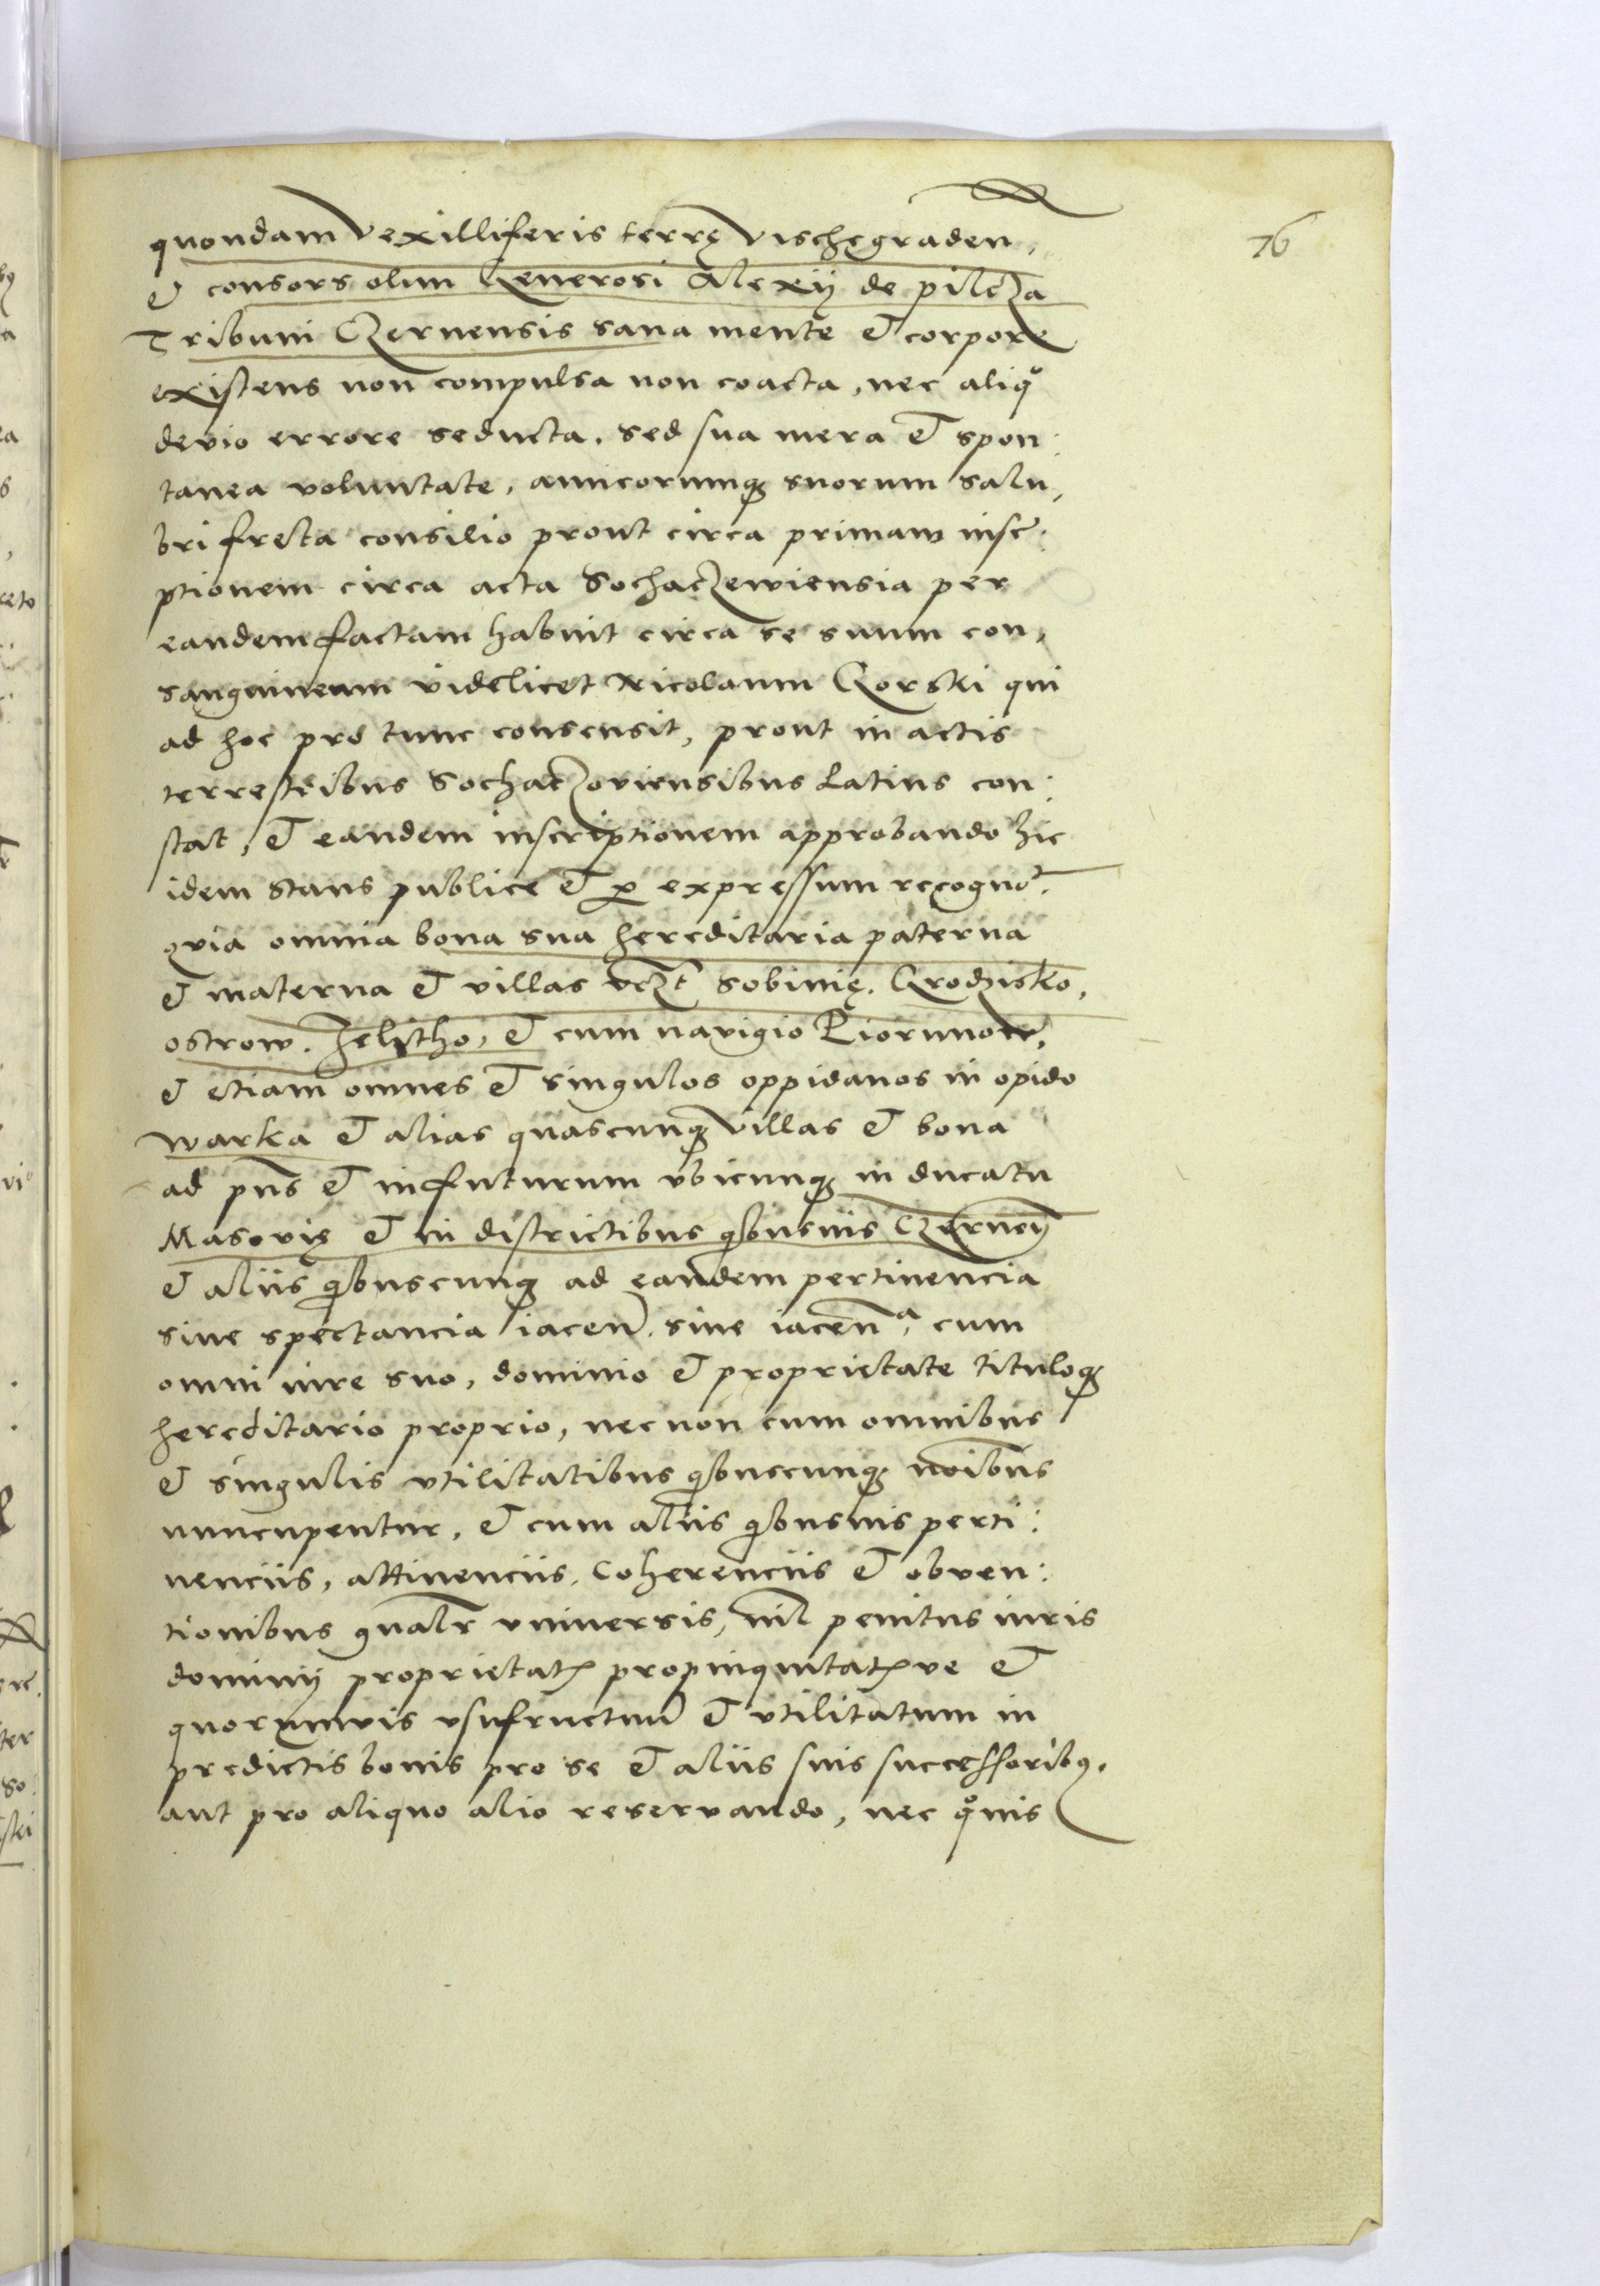 76
quondam vexilliferis terrę vischegraden,
et consors olim Generosi Alexij de pilcza
Tribuni Czernensis sana mente et corpore
existens non compulsa non coacta, nec aliqͦ
devio errore seducta. sed sua mera et spon:
tanea voluntate, amicorumq; suorum salu,
bri freta consilio prout circa primam insc͡
ptionem circa acta Sochaczewiensia per
eandem factam habuit circa se suum con,
sanguineum videlicet Nicolaum Gorski qui
ad hoc pro tunc consensit, prout in actis
terrestribus Sochaczoviensibus Latius con:
stat, et eandem inscriptionem approbando hic
idem stans publice et p̱ expressum recognoͭ.
quia omnia bona sua hereditaria paterna
et materna et villas vczt Sobinię. Grodzisko,
ostrow. et cum navigio Piorunow,
et etiam omnes et singulos oppidanos in opido
warka et alias quascunq; villas et bona
ad pn̄s et in futurum vbicunq; in ducatu
Masovię et in districtibus qͥbusvis Czerneñ
et aliis qͥbuscunq; ad eandem pertinencia
sive spectancia iaceñ. sive iacenñᵃ, cum
omni iure suo, dominio et proprietate tituloq;
hereditario proprio, nec non cum omnibus
et singulis vtilitatibus qͥbuscunq; noībus
nuncupentur, et cum aliis qͥbusvis perti:
nenciis, attinenciis. Coherenciis et obven:
tionibus gn̄alr vniversis, nil penitus iuris
dominij proprietatꝭ propinquitatꝭve et
quorumvis vsufructuum et vtilitatum in
predictis bonis pro se et aliis suis successoribꝰ.
aut pro aliquo alio reservando, nec qͦvis